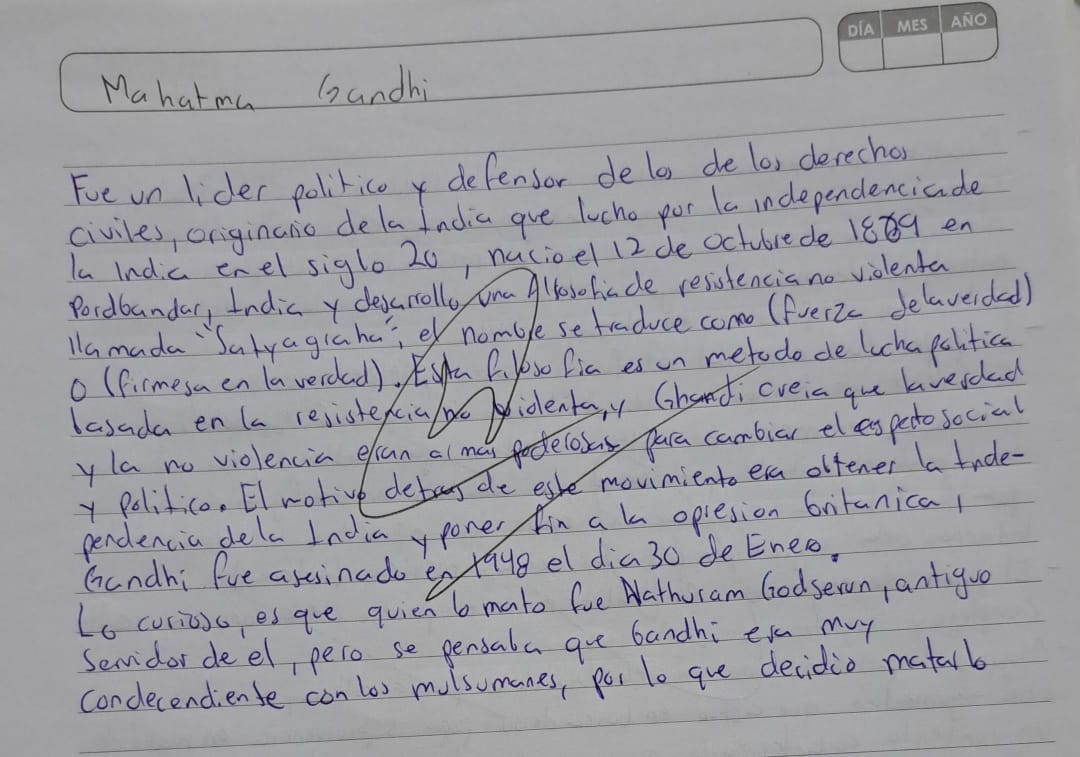 DÍA MES AÑO
Mahatma Gandhi
Fue un lider politico y defensor de los de los derechos
civiles, originario de la India que lucho por la independencia de
la India en el siglo 20, nacio el 12 de octubre de 1869 en
Pordbandar, India y desarrollo una filosofia de resistencia no violenta
llamada "Satyagraha", el nombre se traduce como (fuerza de la verdad)
O (firmesa en la verdad). Esta filosofia es un metodo de lucha politica
basada en la resistencia no violenta, y Ghandi creia que la verdad
y la no violencia eran almas poderosas para cambiar el espectosocial
y politico. El motivo detras de este movimiento era obtener la Inde-
pendencia de la India y poner fin a la opresion britanica,
Gandhi fue asesinado en 1948 el dia 30 de Enero.
Lo curioso, es que quien lo mato fue Nathuram Godserun, antiguo
Servidor de el, pero se pensaba que Gandhi era muy
Condecendiente con los mulsumanes, por lo que decidio matarlo